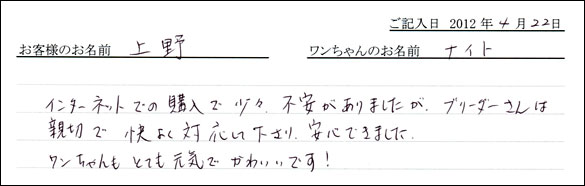 ご記入日 2012年4月22日
お客様のお名前 上野 ワンちゃんのお名前 ナイト
インターネットでの購入で少々、不安がありましたが、ブリーダーさんは
親切で快よく対応して下さり、安心できました。
ワンちゃんもとても元気でかわいいです!